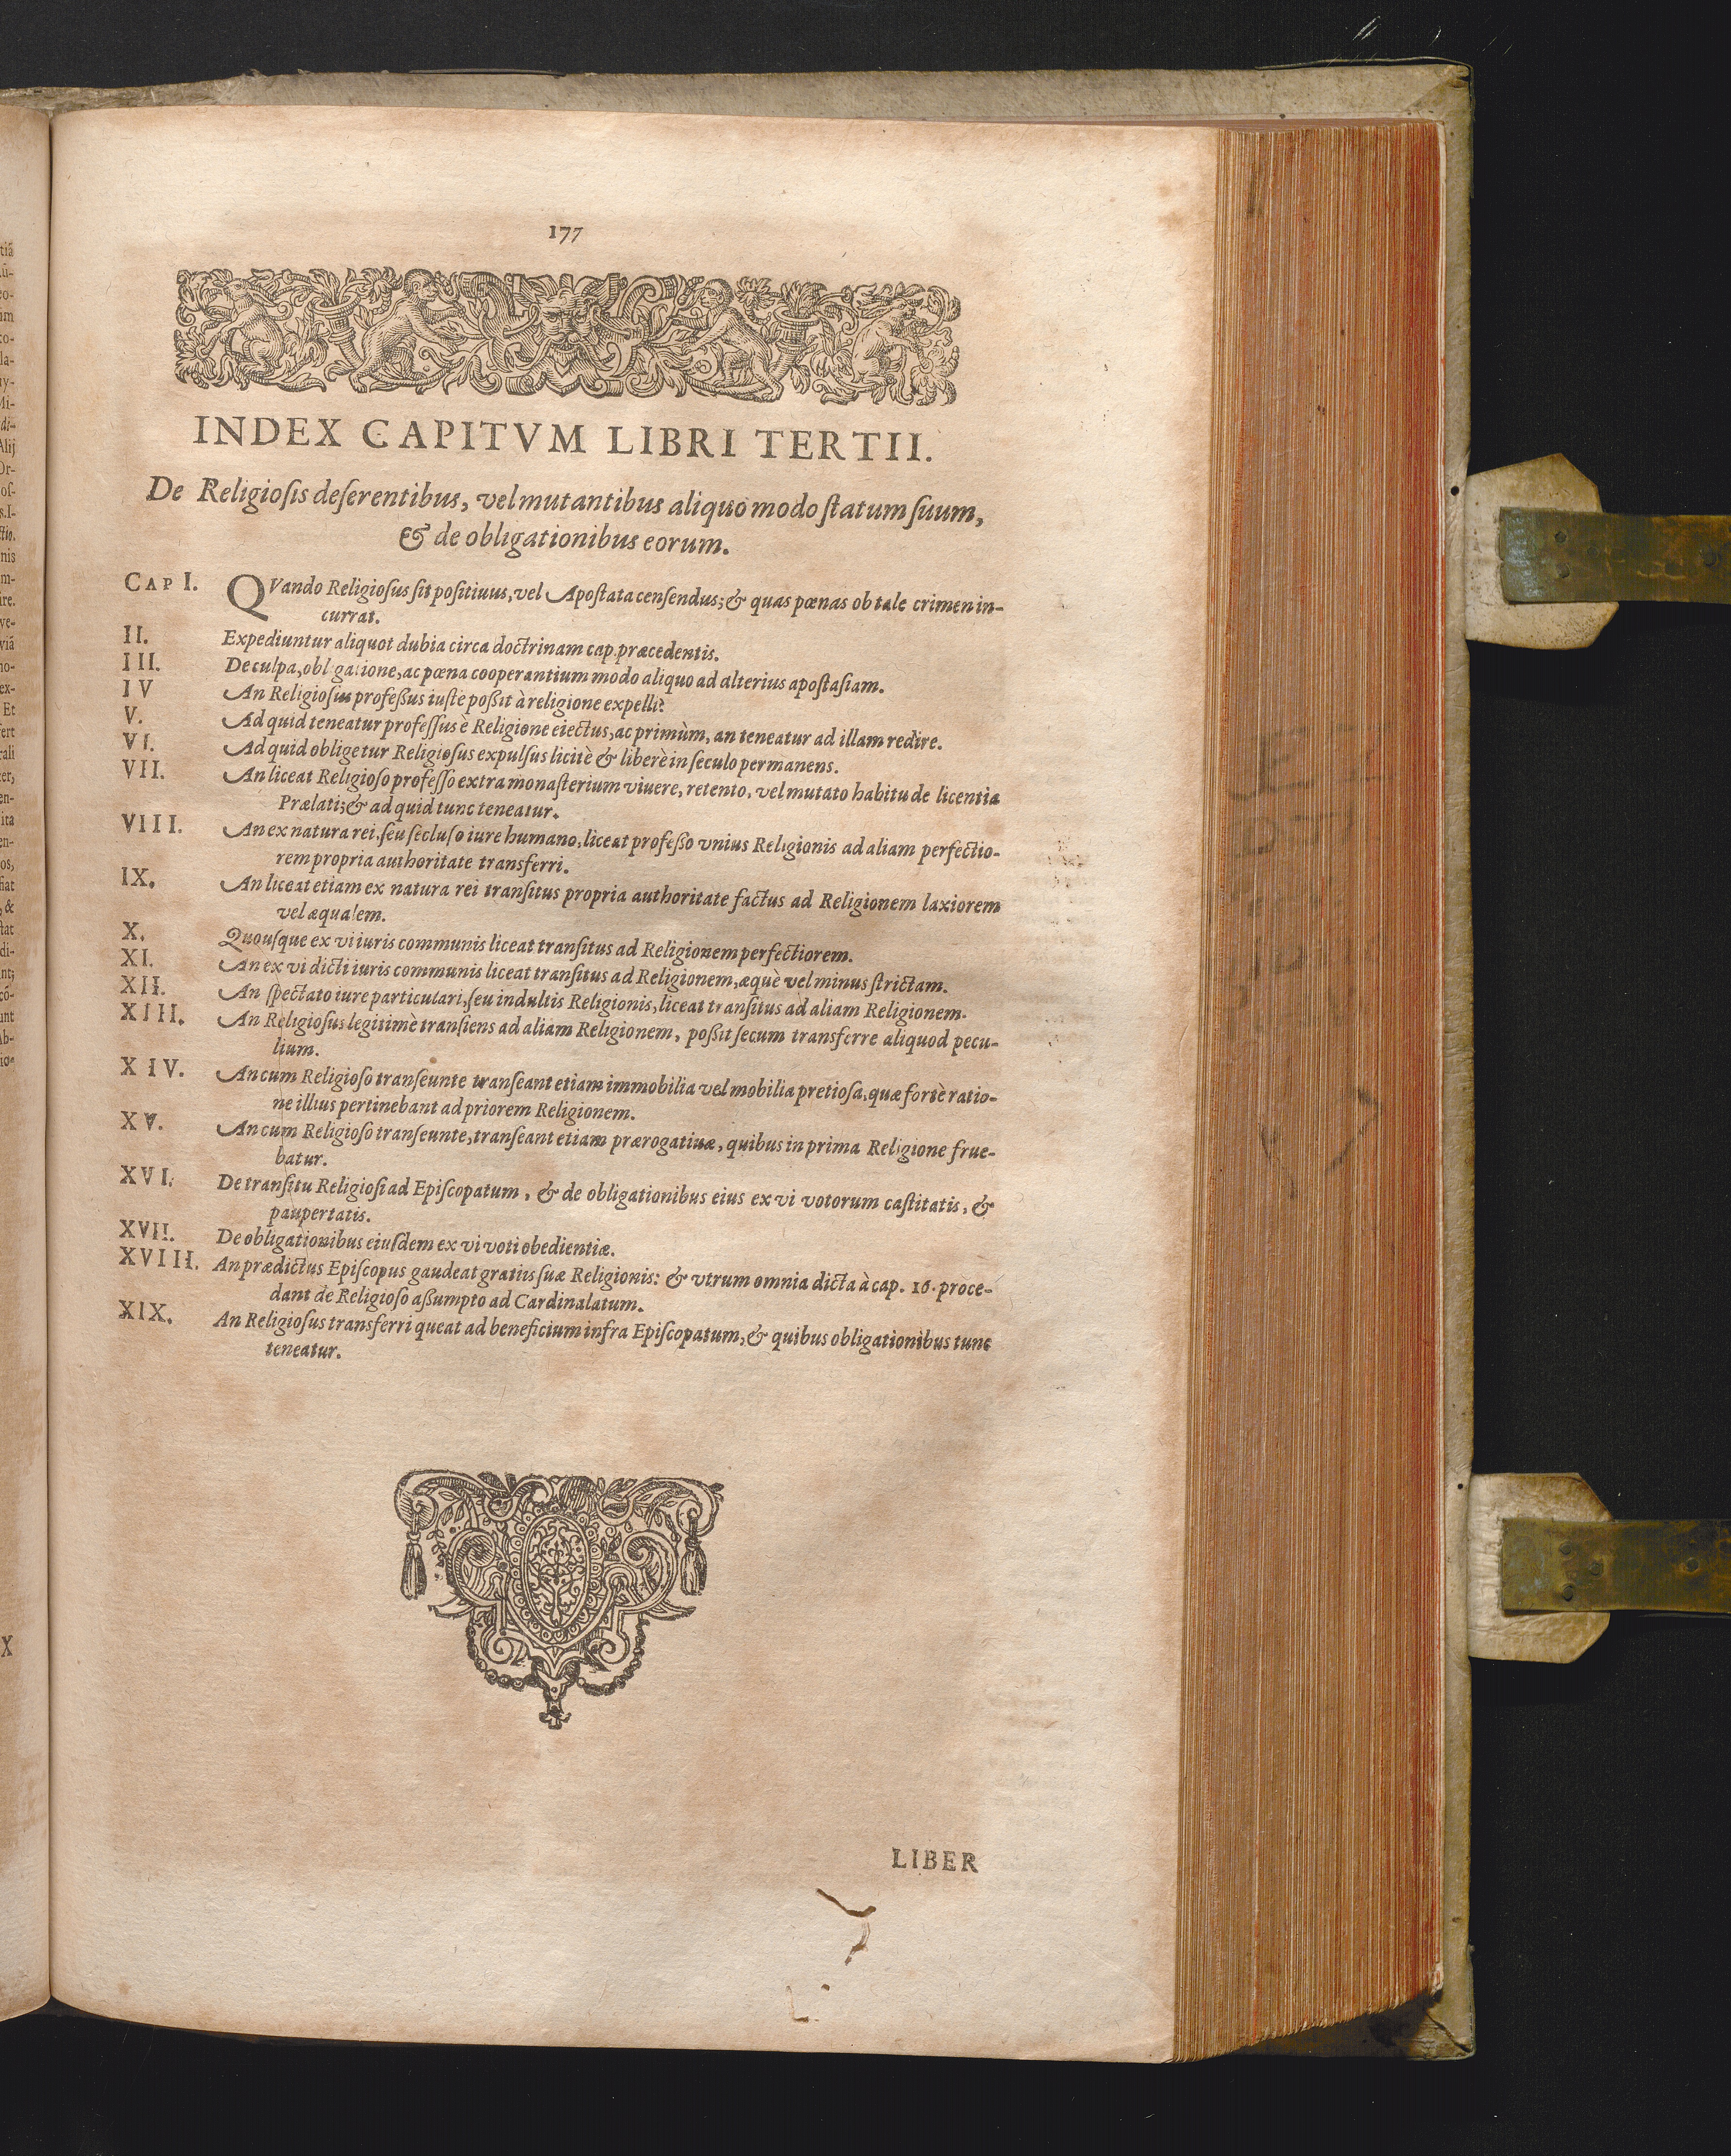 177
INDEX CAPITVM LIBRI TERTII.
De Religiosis deserentibus, vel mutantibus aliquo modo statum suum,
& de obligationibus eorum.
CAP I. QVando Religiosus sit positiuus, vel Apostata censendus; & quas pœnas ob tale crimen in-
currat.
II. Expediuntur aliquot dubia circa doctrinam cap. præcedentis.
III. De culpa, obligatione, ac pœna cooperantium modo aliquo ad alterius apostasiam.
IV An Religiosus professus iuste possit à religione expelli?
V. Ad quid teneatur professus è Religione eiectus, ac primùm, an teneatur ad illam redire.
VI. Ad quid obligetur Religiosus expulsus licitè & liberè in seculo permanens.
VII. An liceat Religioso professo extra monasterium viuere, retento, vel mutato habitu de licentia
Prælati; & ad quid tunc teneatur.
VIII. An ex natura rei, seu secluso iure humano, liceat professo vnius Religionis ad aliam perfectio-
rem propria authoritate transferri.
IX. An liceat etiam ex natura rei transitus propria authoritate factus ad Religionem laxiorem
vel æqualem.
X. Quousque ex vi iuris communis liceat transitus ad Religionem perfectiorem.
XI. An ex vi dicti iuris communis liceat transitus ad Religionem, æquè vel minus strictam.
XII. An spectato iure particulari, seu indultis Religionis, liceat transitus ad aliam Religionem.
XIII. An Religiosus legitimè transiens ad aliam Religionem, possit secum transferre aliquod pecu-
lium.
XIV. An cum Religioso transeunte transeant etiam immobilia vel mobilia pretiosa, quæ fortè ratio-
ne illius pertinebant ad priorem Religionem.
XV. An cum Religioso transeunte, transeant etiam prærogatiuæ, quibus in prima Religione frue-
batur.
XVI. De transitu Religiosi ad Episcopatum, & de obligationibus eius ex vi votorum castitatis, &
paupertatis.
XVII. De obligationibus eiusdem ex vi voti obedientiæ.
XVIII. An prædictus Episcopus gaudeat gratiis suæ Religionis: & vtrum omnia dicta à cap. 16. proce-
dant de Religioso assumpto ad Cardinalatum.
XIX. An Religiosus transferri queat ad beneficium infra Episcopatum, & quibus obligationibus tunc
teneatur.
LIBER